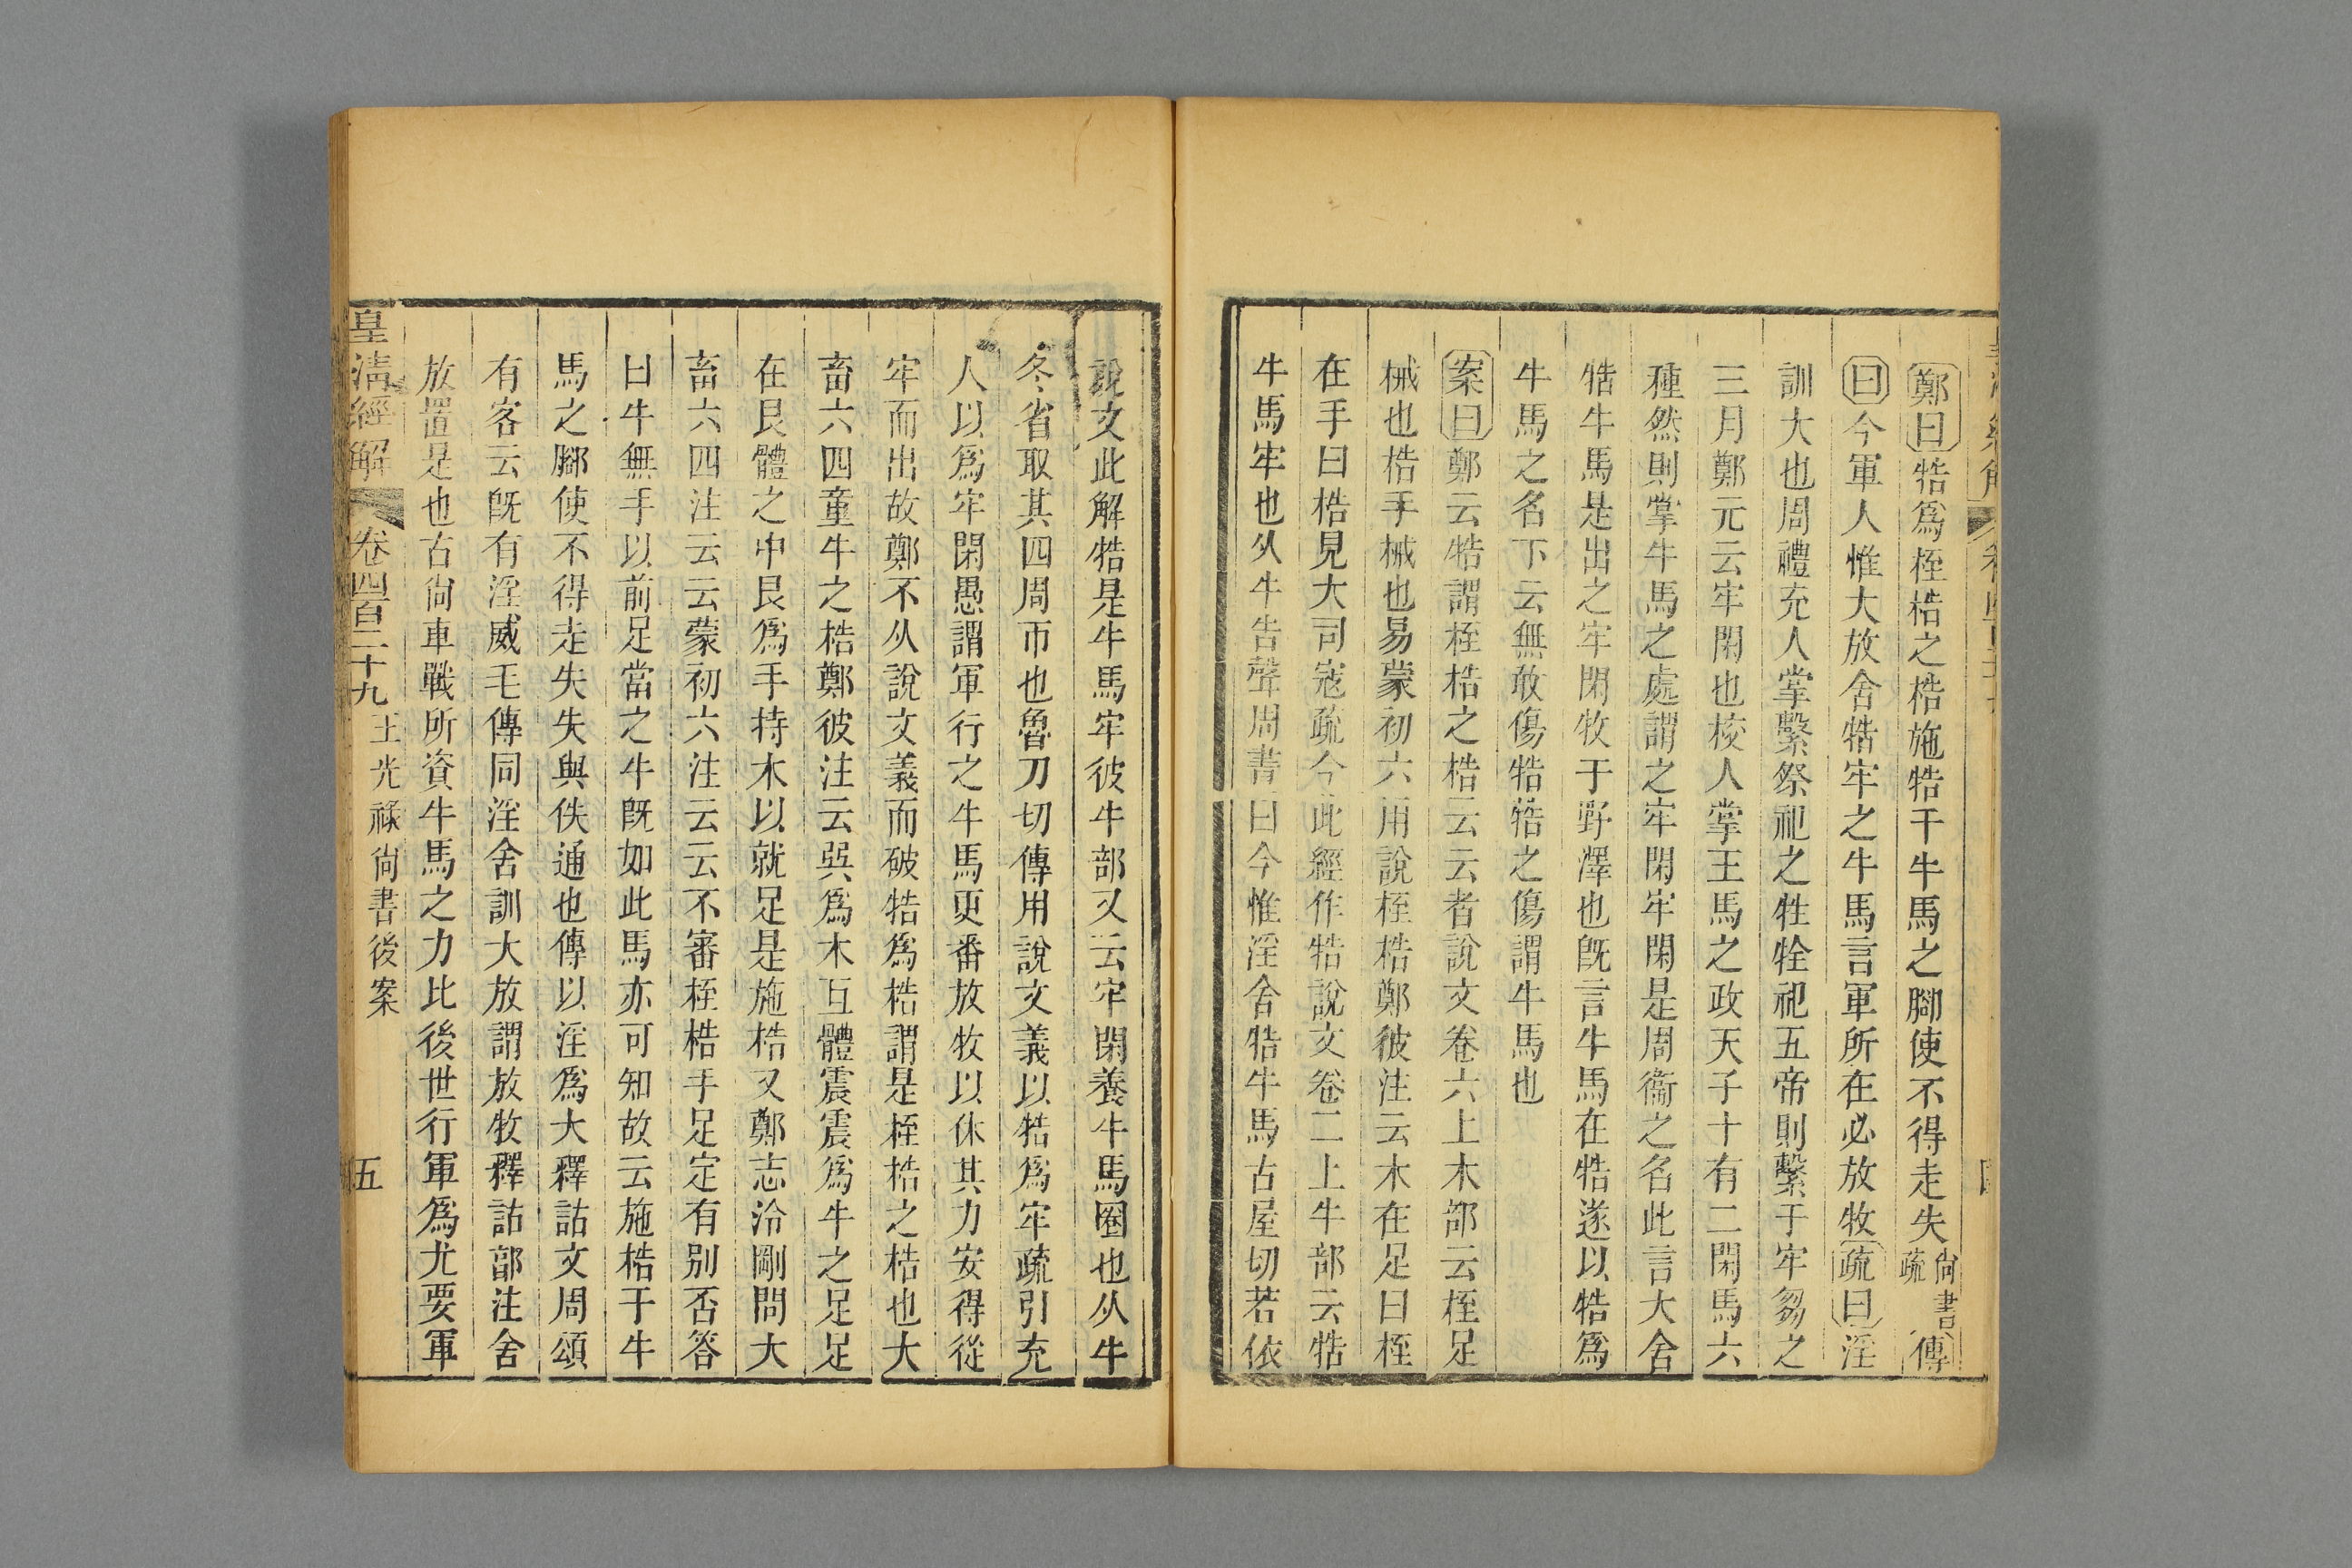 鄭曰牿爲桎梏之梏施牿于牛馬之腳使不得走失尙書疏傳
曰今軍人惟大放舍牿牢之牛馬言軍所在必放牧疏曰淫
訓大也周禮充人掌繫祭祀之牲牷祀五帝則繫于牢芻之
三月鄭元云牢閑也校人掌王馬之政天子十有二閑馬六
種然則掌牛馬之處謂之牢閑牢閑是周衞之名此言大舍
牿牛馬是出之牢閑牧于野澤也旣言牛馬在牿遂以牿爲
牛馬之名下云無敢傷牿牿之傷謂牛馬也
案曰鄭云牿謂桎梏之梏云云者說文卷六上木部云桎足
械也梏手械也易蒙初六用說桎梏鄭彼注云木在足曰桎
在手曰梏見大司寇疏今此經作牿說文卷二上牛部云牿
牛馬牢也从牛告聲周書曰今惟淫舍牿牛馬古屋切若依
說文此解牿是牛馬牢彼牛部又云牢閑養牛馬圈也从牛
冬省取其四周帀也魯刀切傳用說文義以牿爲牢疏引充
人以爲牢閑愚謂軍行之牛馬更番放牧以休其力安得從
牢而出故鄭不从說文義而破牿爲梏謂是桎梏之梏也大
畜六四童牛之梏鄭彼注云巽爲木互體震震爲牛之足足
在艮體之中艮爲手持木以就足是施梏又鄭志泠剛問大
畜六四注云云蒙初六注云云不審桎梏手足定有別否答
曰牛無手以前足當之牛旣如此馬亦可知故云施梏于牛
馬之腳使不得走失失與佚通也傳以淫爲大釋詁文周頌
有客云旣有淫威毛傳同淫舍訓大放謂放牧釋詁郭注舍
放置是也古尙車戰所資牛馬之力比後世行軍爲尤要軍
皇淸經解 卷四百二十九 王光祿尙書後案 五